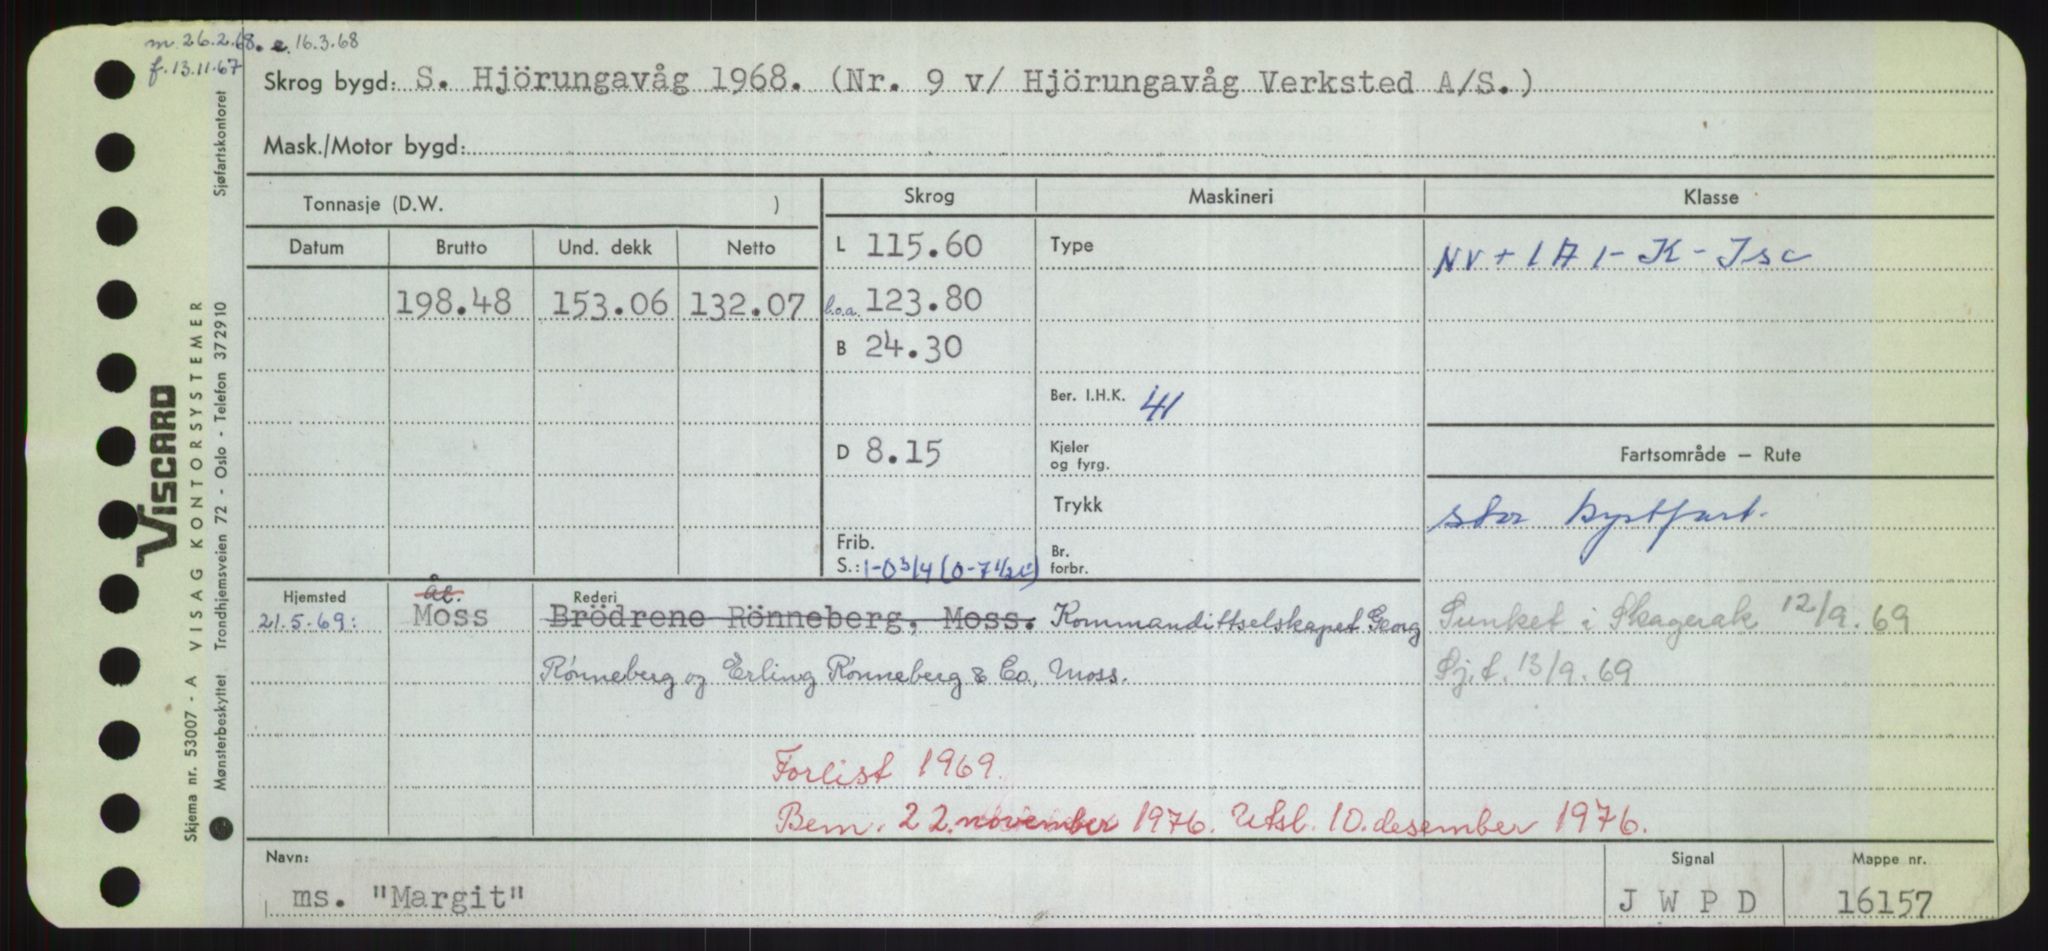 m. 26.2.68. e. 16.3.68
f. 13.11.67
Skrog bygd: S. Hjörungavåg 1968. (Nr. 9 v/ Hjörungavåg Verksted A/S.)
Mask./Motor bygd:
Tonnasje (D.W. )
Skrog
Maskineri
Klasse
Datum
Brutto
Und. dekk
Netto
L 115.60
Type
NV + 1 A 1 - K - Isc
198.48
153.06
132.07
l.o.a. 123.80
B 24.30
Ber. I.H.K. 41
D 8.15
Kjeler
og fyrg.
Fartsområde — Rute
Trykk
stor kystfart.
Frib.
S.: 1-0 3/4 (0-7 1/2
Br.
forbr.
Hjemsted
Ål.
Rederi
21.5.69:
Moss
Brödrene Rönneberg, Moss. Kommandittselskapet Georg
Rønneberg og Erling Rønneberg & Co., Moss.
Sunket i Skagerak 12/9. 69
Sj.f. 13/9. 69
Forlist 1969.
Bem. 22. november 1976. Utsl. 10. desember 1976.
Navn:
ms. "Margit"
Signal
J W P D
Mappe nr.
16157
VISCARD
Skjema nr. 53007 - A VISAG KONTORSYSTEMER
Mønsterbeskyttet Trondhjemsveien 72 - Oslo - Telefon 372910 Sjøfartskontoret